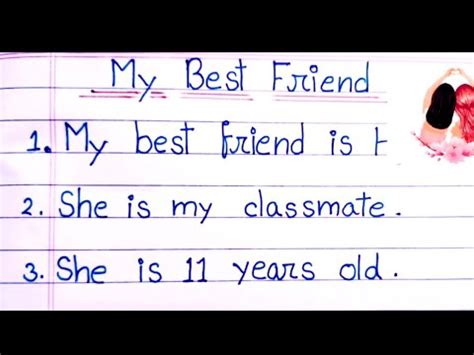 My Best Friend
1. My best friend is
2. She is my classmate.
3. She is 11 years old.